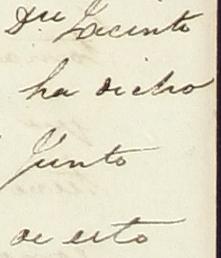 Dn Jacinto
ha dicho
Junto
de esto